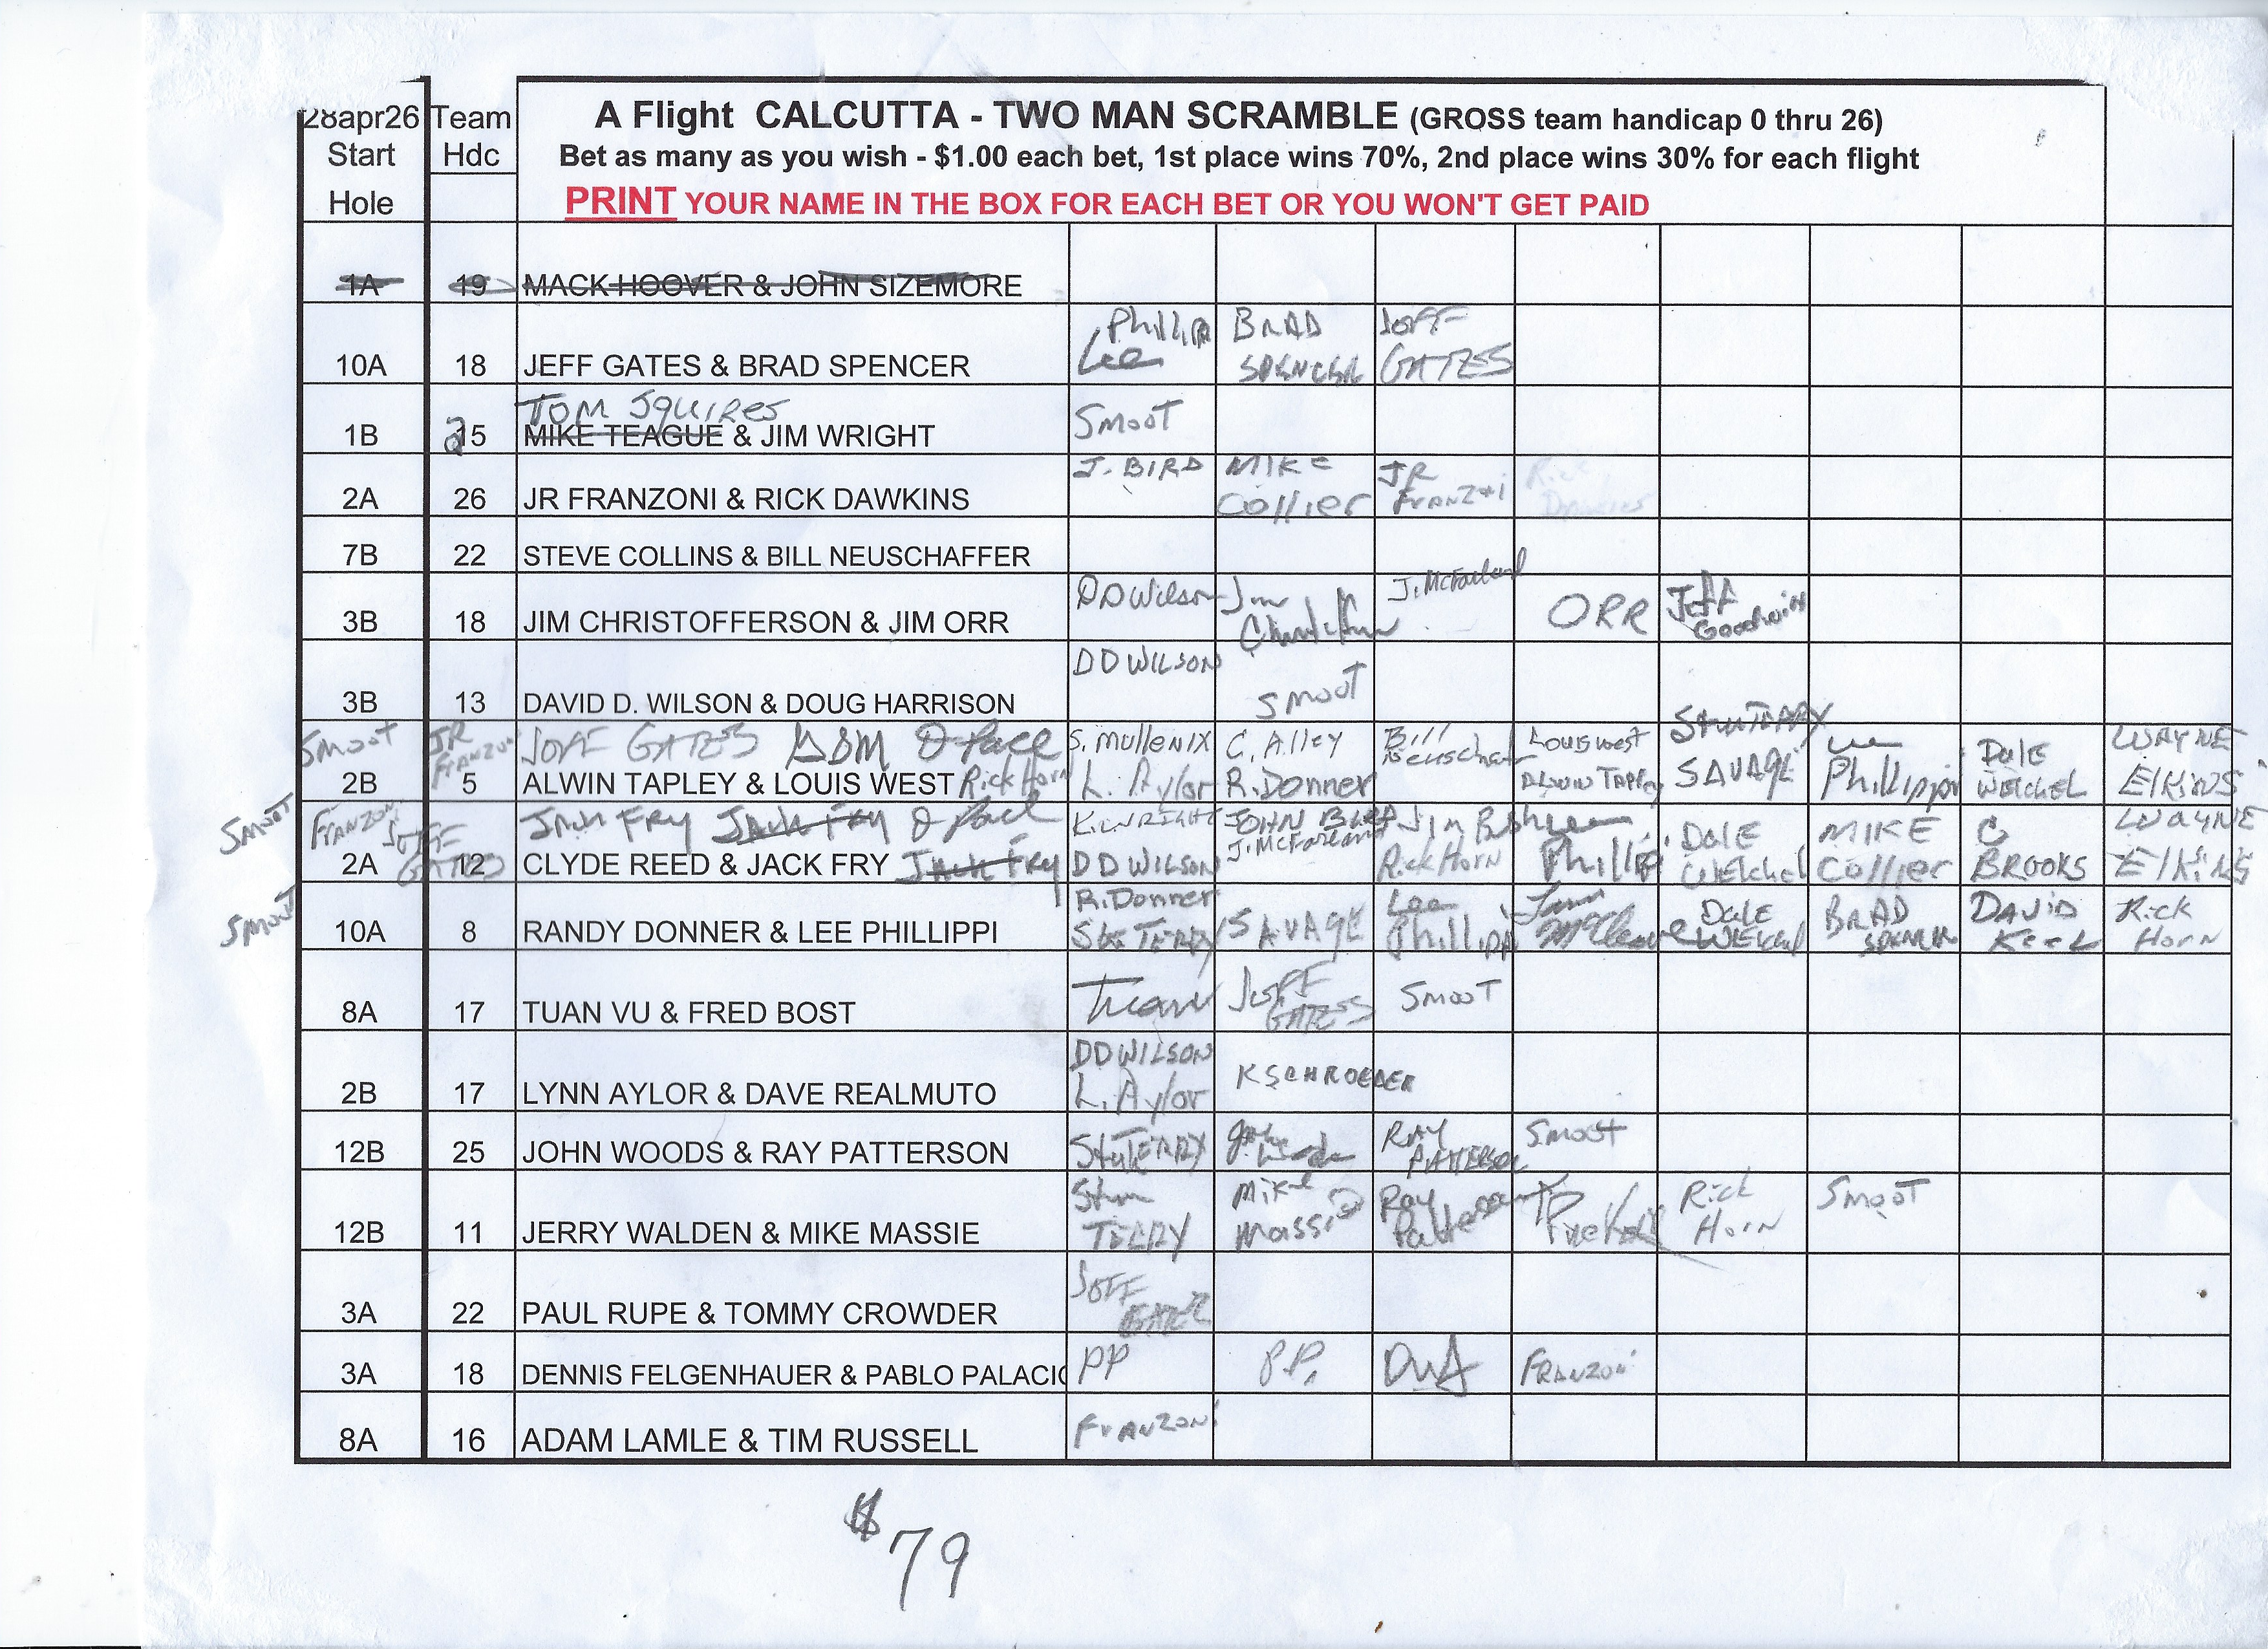 28apr26 Team A Flight CALCUTTA - TWO MAN SCRAMBLE (GROSS team handicap 0 thru 26)
Start Hdc Bet as many as you wish - $1.00 each bet, 1st place wins 70%, 2nd place wins 30% for each flight
Hole PRINT YOUR NAME IN THE BOX FOR EACH BET OR YOU WON'T GET PAID
1A 19 MACK HOOVER & JOHN SIZEMORE
Phillip BRAD JEFF
10A 18 JEFF GATES & BRAD SPENCER Lee SPENCER GATES
TOM SQUIRES SMOOT
1B 25 MIKE TEAGUE & JIM WRIGHT
J. BIRD MIKE JR Rick
2A 26 JR FRANZONI & RICK DAWKINS Collier FRANZONI
7B 22 STEVE COLLINS & BILL NEUSCHAFFER
DD Wilson Jim J. McFarland Jeff
3B 18 JIM CHRISTOFFERSON & JIM ORR ORR Goodwin
DD WILSON
3B 13 DAVID D. WILSON & DOUG HARRISON SMOOT
Smoot JR FRANZONI JEFF GATES D Pace S. Mullenix C. Alley Bill Neuschaf Louis West Stu TERRY Lee Dale WAYNE
2B 5 ALWIN TAPLEY & LOUIS WEST Rick Horn L. Aylor R. Donner ALWIN TAPLEY SAVAGE Phillippi WEICHEL ElKiNS
Smoot FRANZONI JEFF Jack FRY Jack Fry D Pace K. WRIGHT JOHN BIRD J. McFarland Jim Bush Lee DALE MIKE C WAYNE
2A GATES 12 CLYDE REED & JACK FRY Jack Fry DD WILSON Rick Horn Phillip WEICHEL Collier BROOKS ElKiNS
Smoot R. Donner Lee Dale BRAD DAVID Rick
10A 8 RANDY DONNER & LEE PHILLIPPI Stu TERRY SAVAGE Phillippi WEICHEL SPENCER Keek Horn
Tuan JEFF SMOOT
8A 17 TUAN VU & FRED BOST GATES
DD WILSON K SCHROEDER
2B 17 LYNN AYLOR & DAVE REALMUTO L. Aylor
Stu TERRY John Woods RAY Smoot
12B 25 JOHN WOODS & RAY PATTERSON PATTERSON
Stu Mike Ray Rick SMOOT
12B 11 JERRY WALDEN & MIKE MASSIE TERRY Massie Patterson HORN
JEFF
3A 22 PAUL RUPE & TOMMY CROWDER GATES
3A 18 DENNIS FELGENHAUER & PABLO PALACIO PP P.P. FRANZONI
8A 16 ADAM LAMLE & TIM RUSSELL FRANZONI
$79